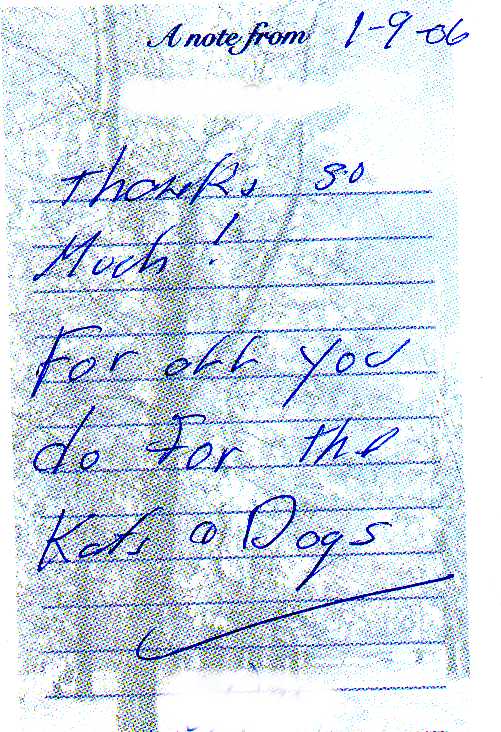 A note from 1-9-06
Thanks so
Much!
For all you
do for the
Kats @ Dogs